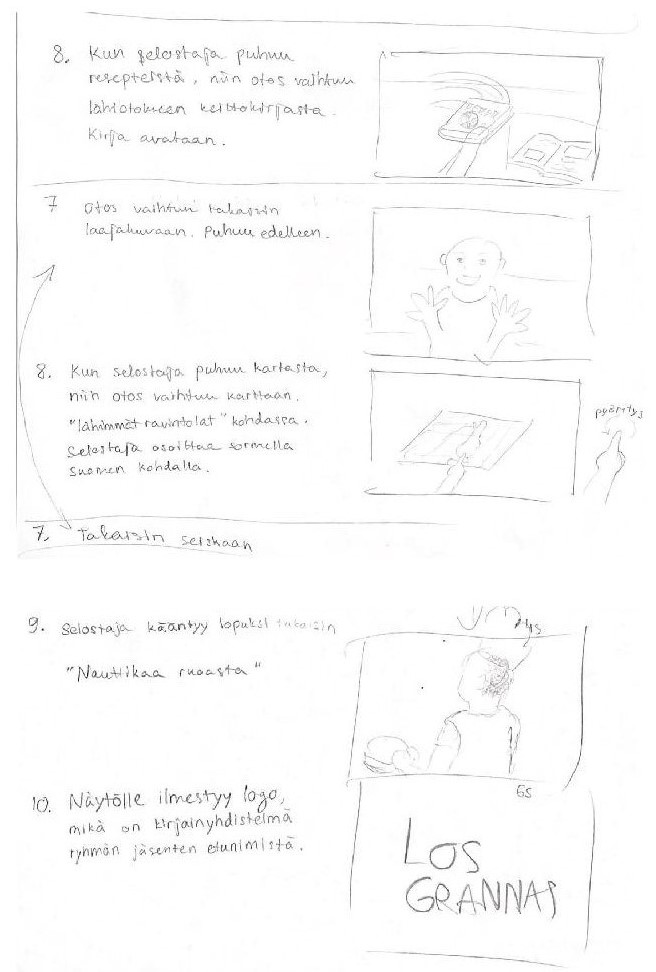 8. Kun selostaja puhuu
resepteistä, niin otos vaihtuu
lähiotokseen keittokirjasta.
Kirja avataan.
7 Otos vaihtuu takaisin
laajakuvaan. Puhuu edelleen.
8. Kun selostaja puhuu kartasta,
niin otos vaihtuu karttaan.
"lähimmät ravintolat" kohdassa.
Selostaja osoittaa sormella
suomen kohdalla.
pyöritys
7. Takaisin seiskaan
9. Selostaja kääntyy lopuksi takaisin
"Nauttikaa ruoasta"
10. Näytölle ilmestyy logo,
mikä on kirjainyhdistelmä
ryhmän jäsenten etunimistä.
LOS
GRANNAS